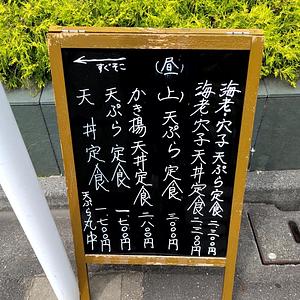 (昼)
海老・穴子 天ぷら定食 二、二〇〇円
海老穴子 天丼定食 二、二〇〇円
(上)天ぷら定食 三、〇〇〇円
かき揚 天丼定食 二、一八〇〇円
天ぷら定食 一、七〇〇円
天丼定食 一、七〇〇円
←すぐそこ
天ぷら 丸中